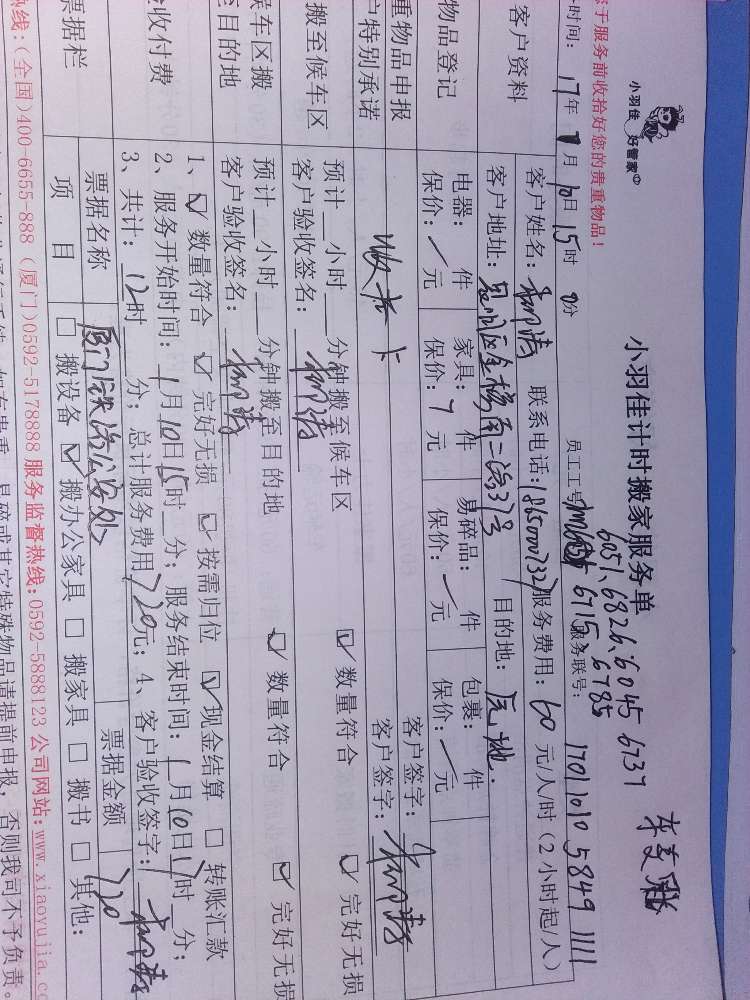 小羽佳 好管家
小羽佳计时搬家服务单
6051、6826、6045 6737
员工工号: 6715、6785
于服务前收拾好您的贵重物品!
时间: 17年 1月 10日 15时 0分
服务联号: 17011010 5849 1111
客户资料
客户姓名: 联系电话: 服务费用: 60 元/人/时 (2小时起/人)
客户地址: 目的地: 原地.
物品登记
电器: 件 家具: 件 易碎品: 件 包裹: 件
保价: / 元 保价: 元 保价: 元 保价: 元
客户签字:
重物品申报
特别承诺
客户签字:
搬至候车区
预计 小时 分钟搬至候车区 ☑ 数量符合 ☑ 完好无损
客户验收签名:
候车区搬
至目的地
预计 小时 分钟搬至目的地 ☑ 数量符合 ☑ 完好无损
客户验收签名:
验收付费
1、☑ 数量符合 ☑ 完好无损 ☑ 按需归位 ☑ 现金结算 □ 转账汇款
2、服务开始时间: 1月10日15时 分; 服务结束时间: 1月10日17时 分;
3、共计: 12时 分; 总计服务费用 720元; 4、客户验收签字:
票据栏
票据名称 厦门铁路公安处 票据金额 720
项 目 □ 搬设备 ☑ 搬办公家具 □ 搬家具 □ 搬书 □ 其他:
热线: (全国)400-6655-888 (厦门)0592-5178888 服务监督热线:0592-5888123 公司网站:www.xiaoyujia.co
易碎或其它特殊物品请提前申报, 否则我司不予负责。